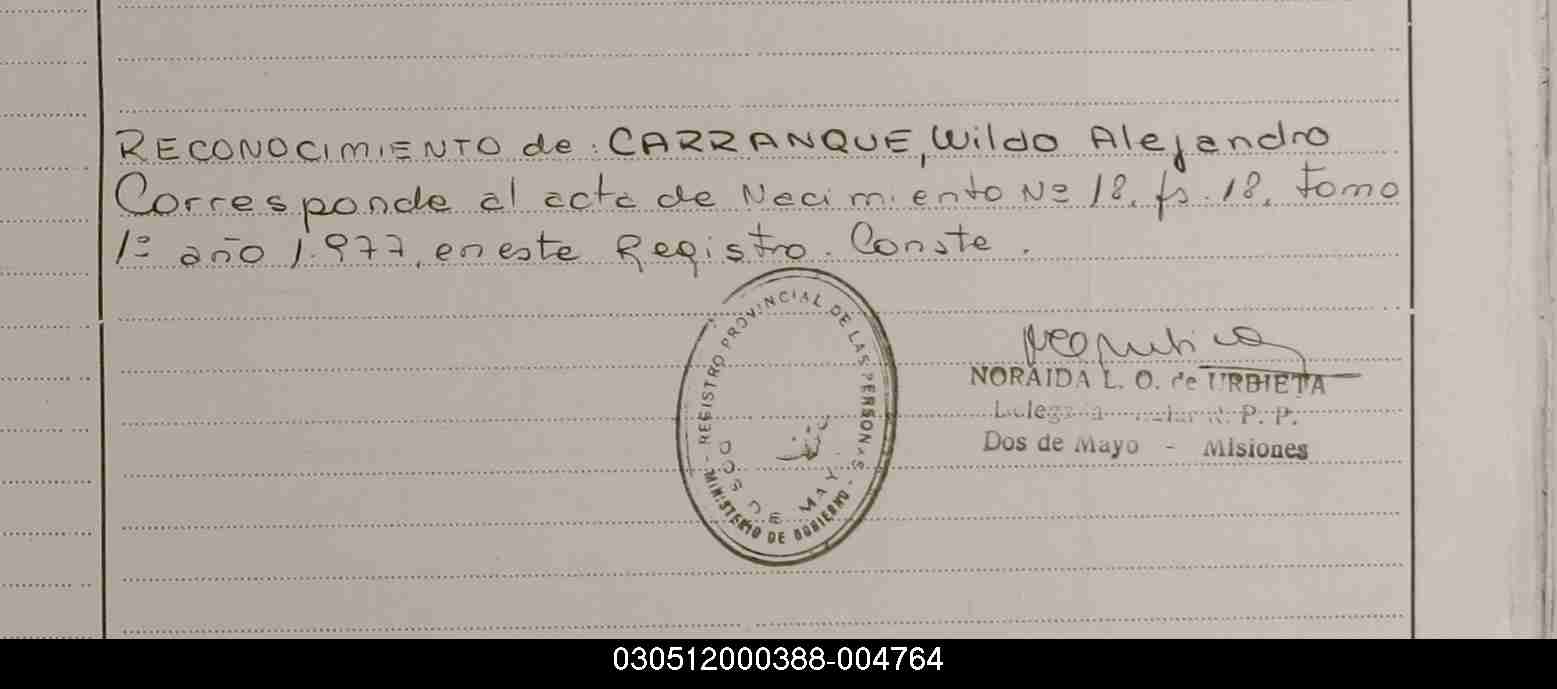 RECONOCIMIENTO de: CARRANQUE, Wildo Alejandro
Corresponde al acta de Nacimiento Nº 18, fs. 18, tomo
1º año 1.977, en este Registro. Conste.
REGISTRO PROVINCIAL DE LAS PERSONAS
DOS DE MAYO
MINISTERIO DE GOBIERNO
NORAIDA L. O. de URBIETA
P. P.
Dos de Mayo - Misiones
030512000388-004764